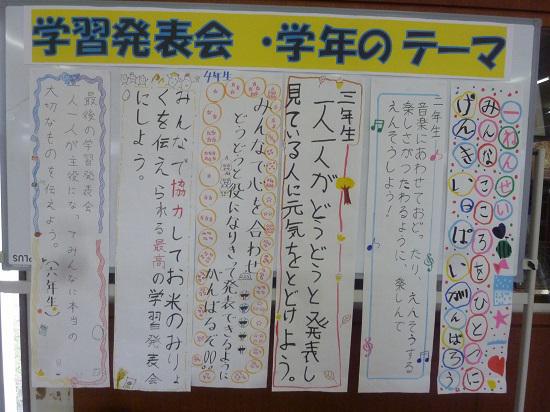 学習発表会・学年のテーマ
一ねんせい
みんなこころをひとつに
げんきいっぱいがんばろう
二年生
音楽にあわせておどったり、えんそうする
楽しさがつたわるように、楽しんで
えんそうしよう！
三年生
一人一人がどうどうと発表し
見ている人に元気をとどけよう。
4年生
みんなで心を合わせ
どうどうと役になりきって発表できるように
がんばるぞ
みんなで協力してお米のみりょ
くを伝えられる最高の学習発表会
にしよう。
最後の学習発表会
一人一人が主役になってみんなに本当の
大切なものを伝えよう。
(六年生)